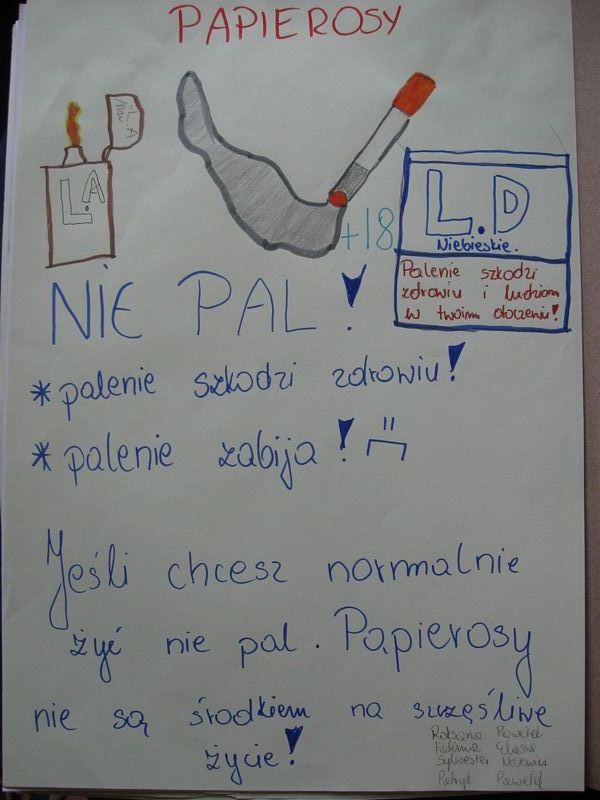 PAPIEROSY
L.A
L.A
+18
L.D
Niebieskie.
Palenie szkodzi
zdrowiu i ludziom
w twoim otoczeniu!
NIE PAL!
* palenie szkodzi zdrowiu!
* palenie zabija!
Jeśli chcesz normalnie
żyć nie pal. Papierosy
nie są środkiem na szczęśliwe
życie!
Roksana Pawełek
Fatima
Sylwester
Patryk Pawełek